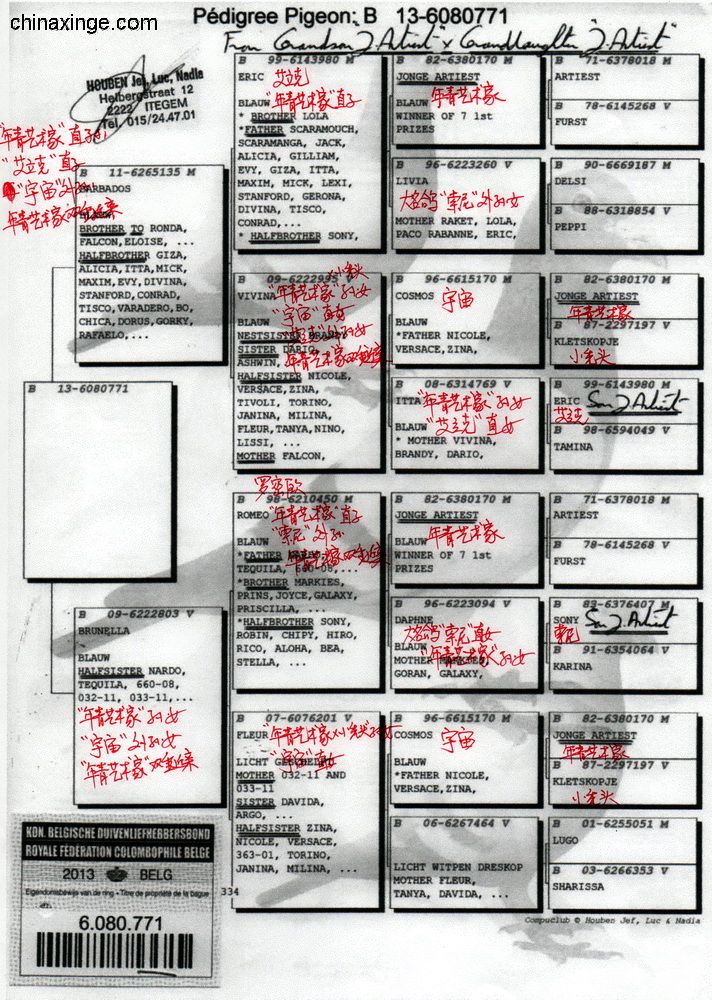 chinaxinge.com
Pédigree Pigeon: B 13-6080771
From Grandson "J. Artiest" x Granddaughter "J. Artiest"
HOUBEN Jef, Luc, Nadia
Helbergstraat 12
2222 ITEGEM
Tel. 015/24.47.01
"年青艺术家"直孙
"艾立克"直子
"宇宙"外孙
年青艺术家双纯近亲
B 11-6265135 M
BARBADOS
BROTHER TO RONDA,
FALCON,ELOISE, ...
HALFBROTHER GIZA,
ALICIA,ITTA,MICK,
MAXIM,EVY,DIVINA,
STANFORD,CONRAD,
TISCO,VARADERO,BO,
CHICA,DORUS,GORKY,
RAFAELO,...
B 13-6080771
B 09-6222803 V
BRUNELLA
BLAUW
HALFSISTER NARDO,
TEQUILA, 660-08,
032-11, 033-11,...
"年青艺术家"孙女
"宇宙"外孙女
"年青艺术家"双近亲
B 99-6143980 M
ERIC 艾立克
BLAUW "年青艺术家"直子
* BROTHER LOLA
*FATHER SCARAMOUCH,
SCARAMANGA, JACK,
ALICIA, GILLIAM,
EVY, GIZA, ITTA,
MAXIM, MICK, LEXI,
STANFORD, GERONA,
DIVINA, TISCO,
CONRAD,...
* HALFBROTHER SONY,
B 09-6222995
VIVINA "年青艺术家"孙女
"宇宙"直女
BLAUW
NESTSISTER BRANDY
SISTER DARIO,
ASHWIN,
HALFSISTER NICOLE,
VERSACE,ZINA,
TIVOLI, TORINO,
JANINA, MILINA,
FLEUR,TANYA,NINO,
LISSI, ...
MOTHER FALCON,
罗密欧
B 98-6210450 M
ROMEO "年青艺术家"直子
"索尼"外孙
BLAUW
*FATHER
TEQUILA, 660-08,...
*BROTHER MARKIES,
PRINS,JOYCE,GALAXY,
PRISCILLA, ...
*HALFBROTHER SONY,
ROBIN, CHIPY, HIRO,
RICO, ALOHA, BEA,
STELLA, ...
B 07-6076201 V
FLEUR "年青艺术家"
"宇宙"直女
LICHT
MOTHER 032-11 AND
033-11
SISTER DAVIDA,
ARGO, ...
HALFSISTER ZINA,
NICOLE, VERSACE,
363-01, TORINO,
JANINA, MILINA, ...
B 82-6380170 M
JONGE ARTIEST
BLAUW 年青艺术家
WINNER OF 7 1st
PRIZES
B 96-6223260 V
LIVIA
大铭鸽"索尼"外孙女
MOTHER RAKET, LOLA,
PACO RABANNE, ERIC,
B 96-6615170 M
COSMOS 宇宙
BLAUW
*FATHER NICOLE,
VERSACE,ZINA,
B 08-6314769 V
ITTA "年青艺术家"孙女
BLAUW "艾立克"直女
* MOTHER VIVINA,
BRANDY, DARIO,
B 82-6380170 M
JONGE ARTIEST
BLAUW 年青艺术家
WINNER OF 7 1st
PRIZES
B 96-6223094 V
DAPHNE
大铭鸽"索尼"直女
BLAUW "年青艺术家"孙女
MOTHER MARKIES,
GORAN, GALAXY,
B 96-6615170 M
COSMOS 宇宙
BLAUW
*FATHER NICOLE,
VERSACE,ZINA,
B 06-6267464 V
LICHT WITPEN DRESKOP
MOTHER FLEUR,
TANYA, DAVIDA, ...
B 71-6378018 M
ARTIEST
B 78-6145268 V
FURST
B 90-6669187 M
DELSI
B 88-6318854 V
PEPPI
B 82-6380170 M
JONGE ARTIEST
年青艺术家
B 87-2297197 V
KLETSKOPJE
小秃头
B 99-6143980 M
ERIC Son J. Artiest
艾立克
B 98-6594049 V
TAMINA
B 71-6378018 M
ARTIEST
B 78-6145268 V
FURST
B 89-6376407 M
SONY Son J. Artiest
索尼
B 91-6354064 V
KARINA
B 82-6380170 M
JONGE ARTIEST
年青艺术家
B 87-2297197 V
KLETSKOPJE
小秃头
B 01-6255051 M
LUGO
B 03-6266353 V
SHARISSA
Compuclub © Houben Jef, Luc & Nadia
KON. BELGISCHE DUIVENLIEFHEBBERSBOND
ROYALE FÉDÉRATION COLOMBOPHILE BELGE
2013 BELG
Eigendomsbewijs van de ring - Titre de propriété de la bague
334
6.080.771